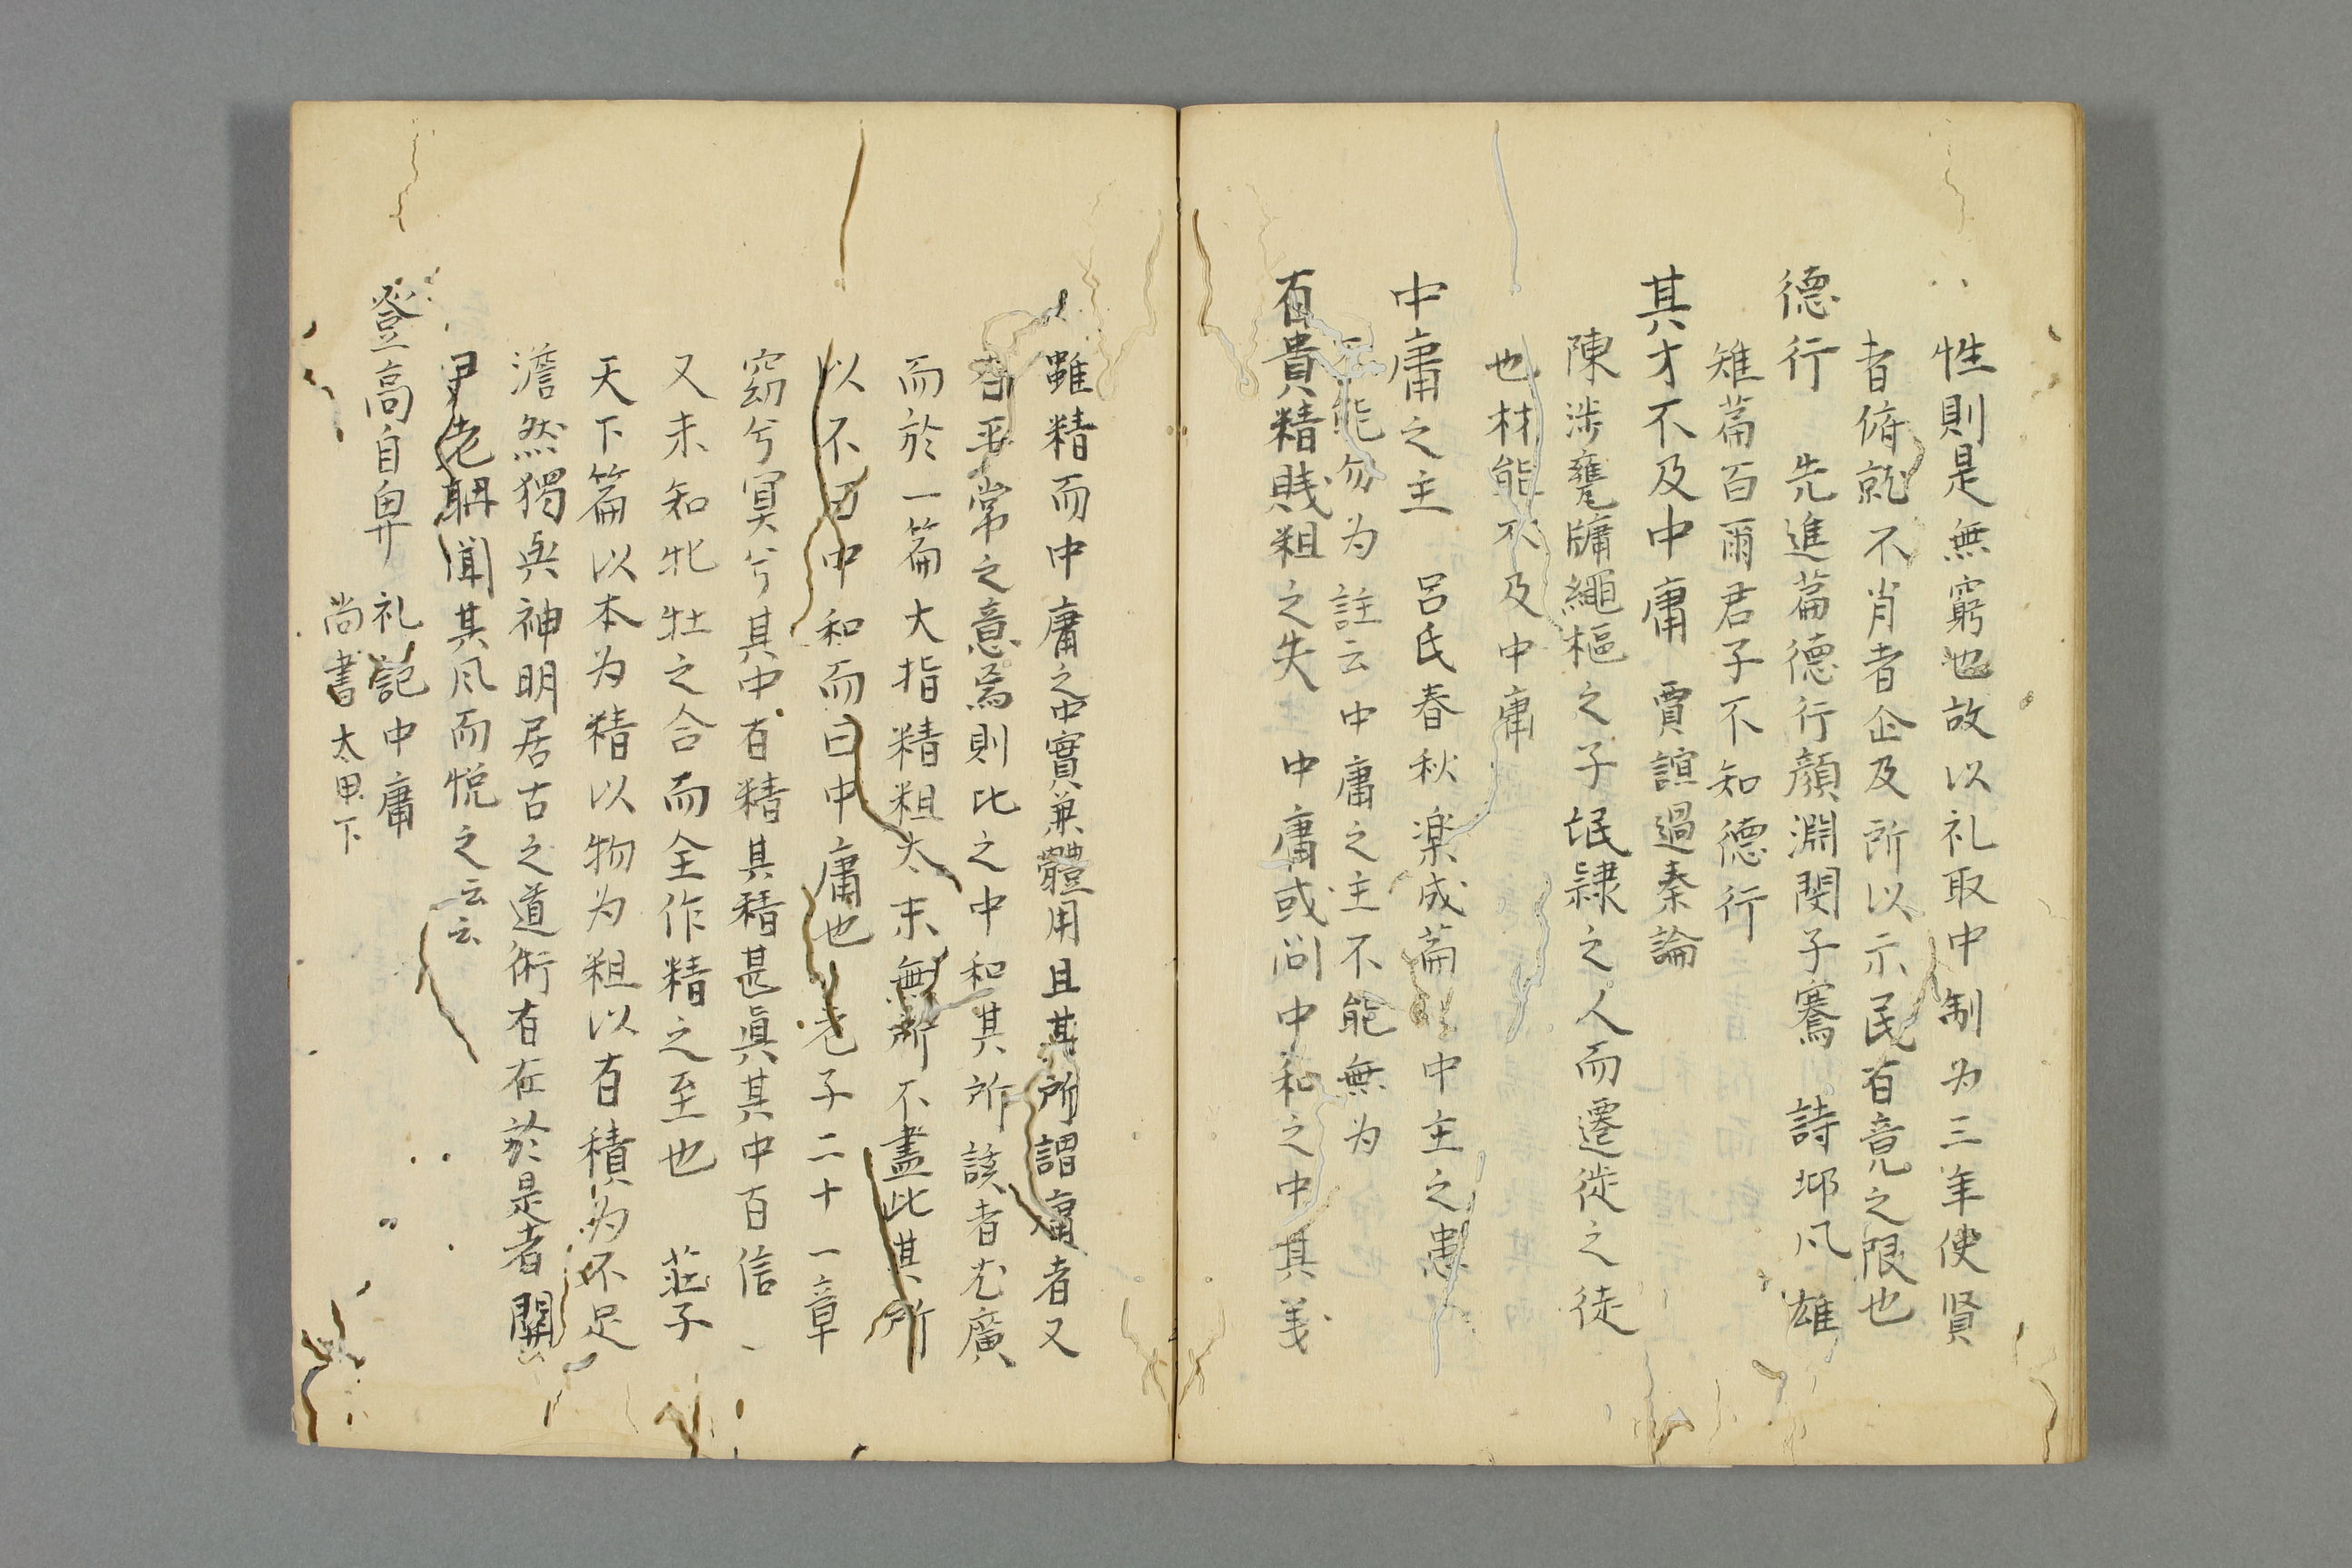 性則是無窮也故以礼取中制为三年使賢
者俯就不肖者企及所以示民有竟之限也
德行　先進篇德行顔淵閔子騫　詩邶风雄
雉篇百爾君子不知德行
其才不及中庸　賈誼過秦論
陳渉甕牖繩樞之子氓隷之人而遷徙之徒
也材能不及中庸
中庸之主　呂氏春秋楽成篇中主之患
不能勿为註云中庸之主不能無为
有貴精賎粗之失　中庸或问中和之中其義
雖精而中庸之中實兼體用且其所謂庸者又
有平常之意焉則比之中和其所該者尤廣
而於一篇大指精粗夲末無所不盡此其所
以不曰中和而曰中庸也　老子二十一章
窈兮冥兮其中有精其精甚眞其中有信
又未知牝牡之合而全作精之至也　莊子
天下篇以本为精以物为粗以有積为不足
澹然獨與神明居古之道術有在於是者關
尹老耼聞其风而悦之云云
登高自卑　礼記中庸
尚書太甲下